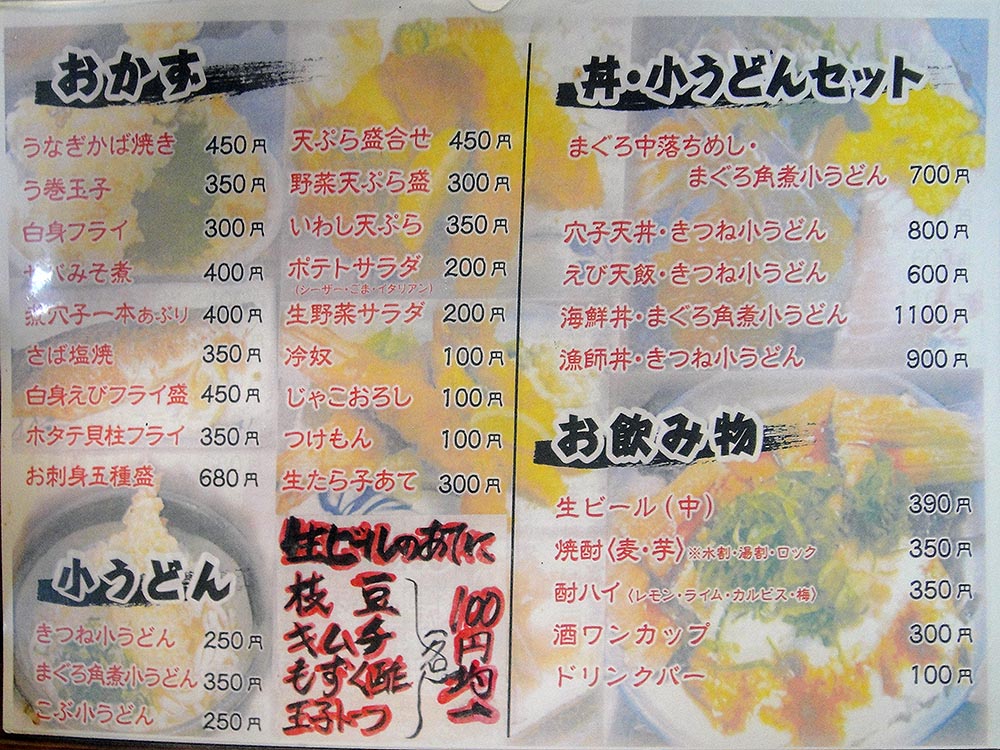 おかず
うなぎかば焼き 450円
う巻玉子 350円
白身フライ 300円
サバみそ煮 400円
煮穴子一本あぶり 400円
さば塩焼 350円
白身えびフライ盛 450円
ホタテ貝柱フライ 350円
お刺身五種盛 680円
小うどん
きつね小うどん 250円
まぐろ角煮小うどん 350円
こぶ小うどん 250円
天ぷら盛合せ 450円
野菜天ぷら盛 300円
いわし天ぷら 350円
ポテトサラダ 200円
(シーザー・ごま・イタリアン)
生野菜サラダ 200円
冷奴 100円
じゃこおろし 100円
つけもん 100円
生たら子あて 300円
生ビールのあてに
枝豆
キムチ
もずく酢
玉子トーフ
100円均一
丼・小うどんセット
まぐろ中落ちめし・
まぐろ角煮小うどん 700円
穴子天丼・きつね小うどん 800円
えび天飯・きつね小うどん 600円
海鮮丼・まぐろ角煮小うどん 1100円
漁師丼・きつね小うどん 900円
お飲み物
生ビール(中) 390円
焼酎〈麦・芋〉※水割・湯割・ロック 350円
酎ハイ〈レモン・ライム・カルピス・梅〉 350円
酒ワンカップ 300円
ドリンクバー 100円